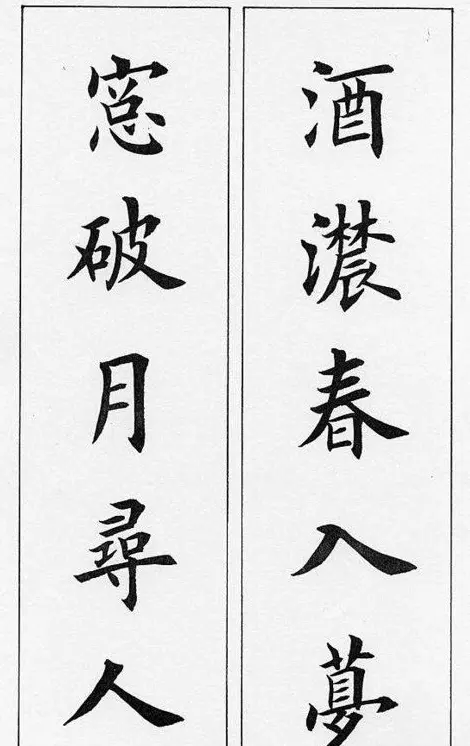 酒濃春入夢
窓破月尋人